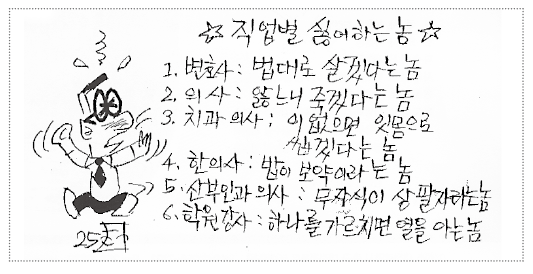 ☆ 직업별 싫어하는 놈 ☆
1. 변호사 : 법대로 살겠다는 놈
2. 의사 : 앓느니 죽겠다는 놈
3. 치과의사 : 이 없으면 잇몸으로
씹겠다는 놈
4. 한의사 : 밥이 보약이라는 놈
5. 산부인과 의사 : 무자식이 상팔자라는놈
6. 학원강사 : 하나를 가르치면 열을 아는 놈
25